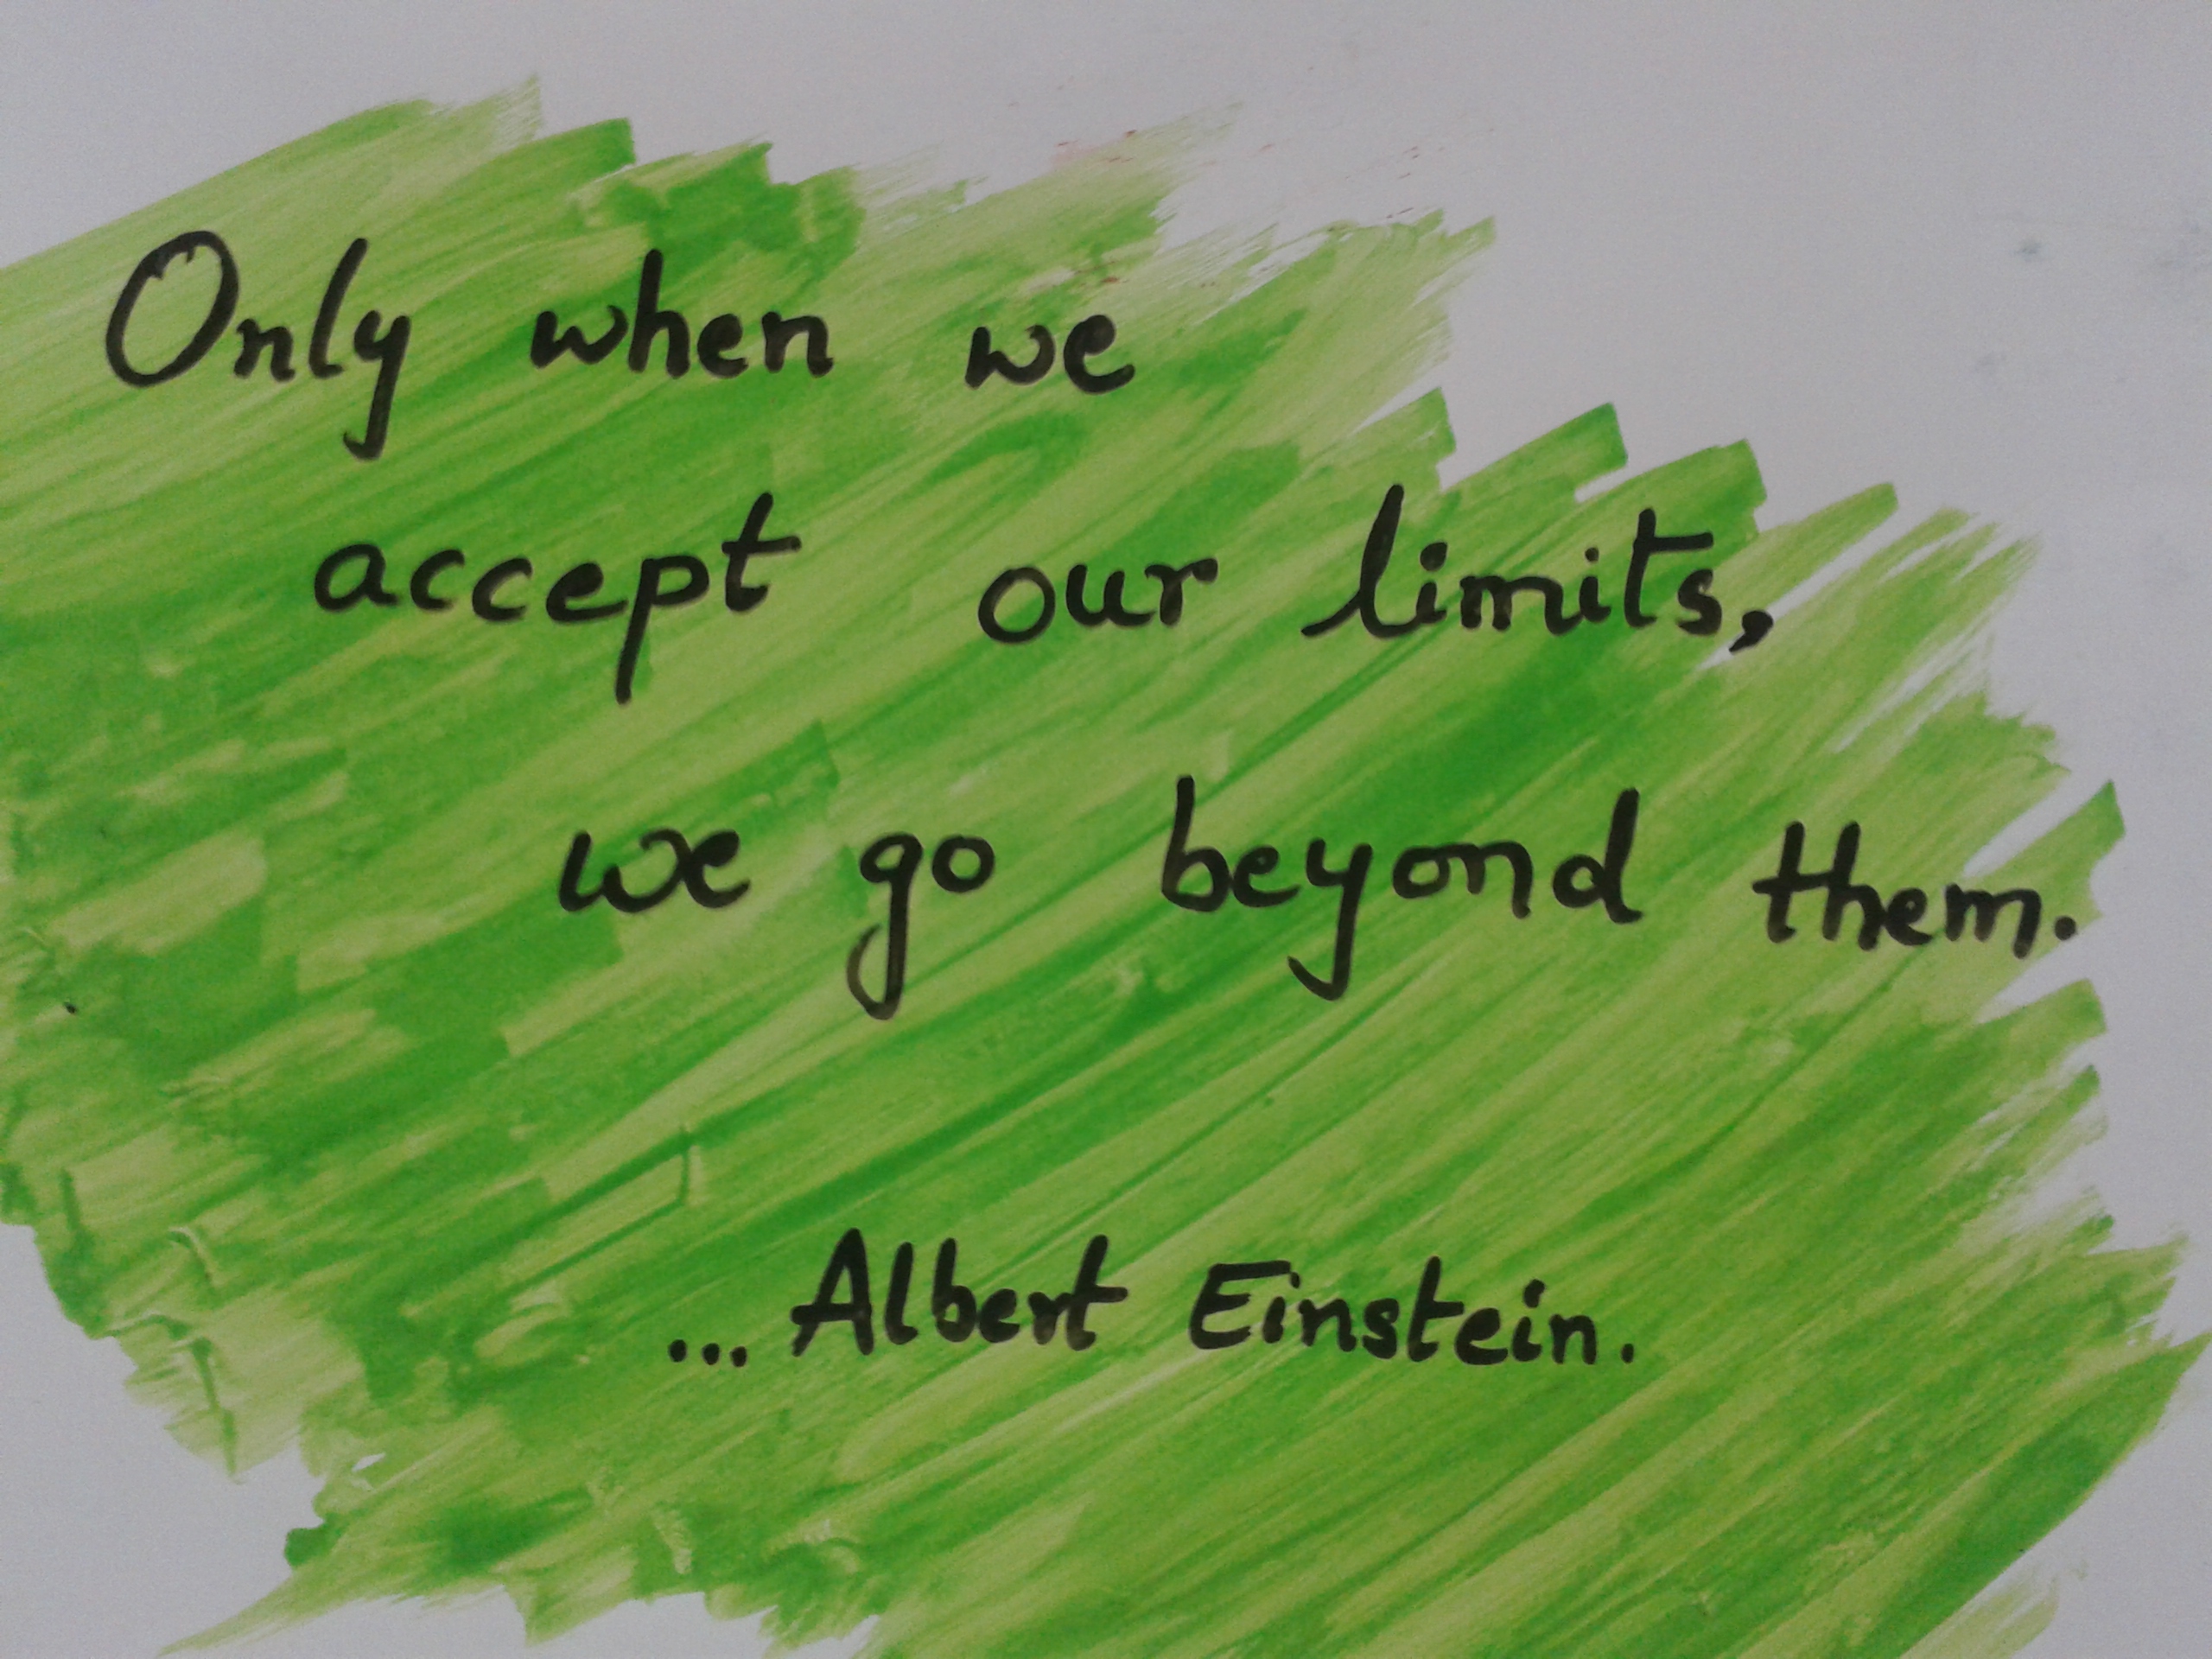 Only when we
accept our limits,
we go beyond them.
... Albert Einstein.